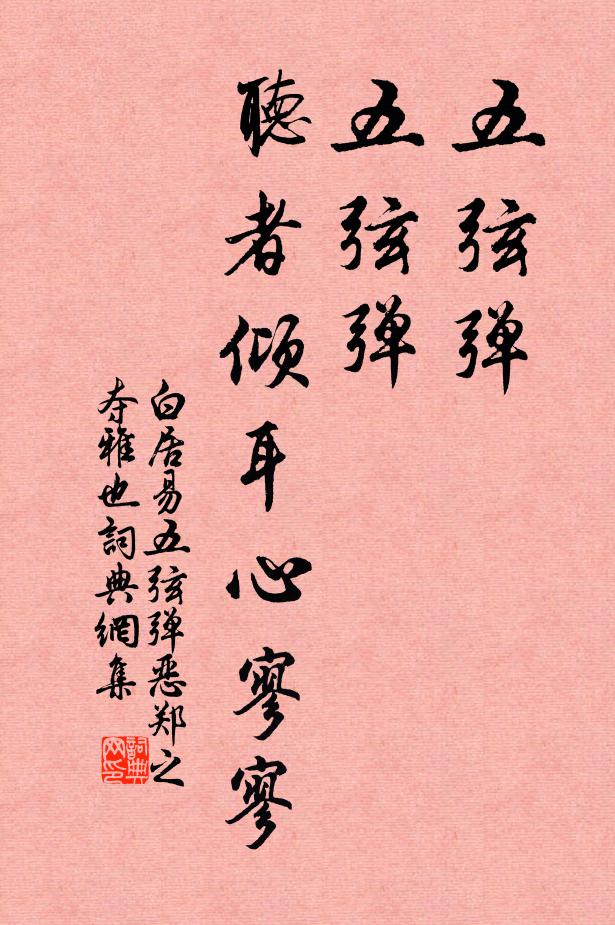 五弦弹
五弦弹
聽者倾耳心寥寥
白居易五弦弹恶郑之
夺雅也詞典網集
詞典
网印